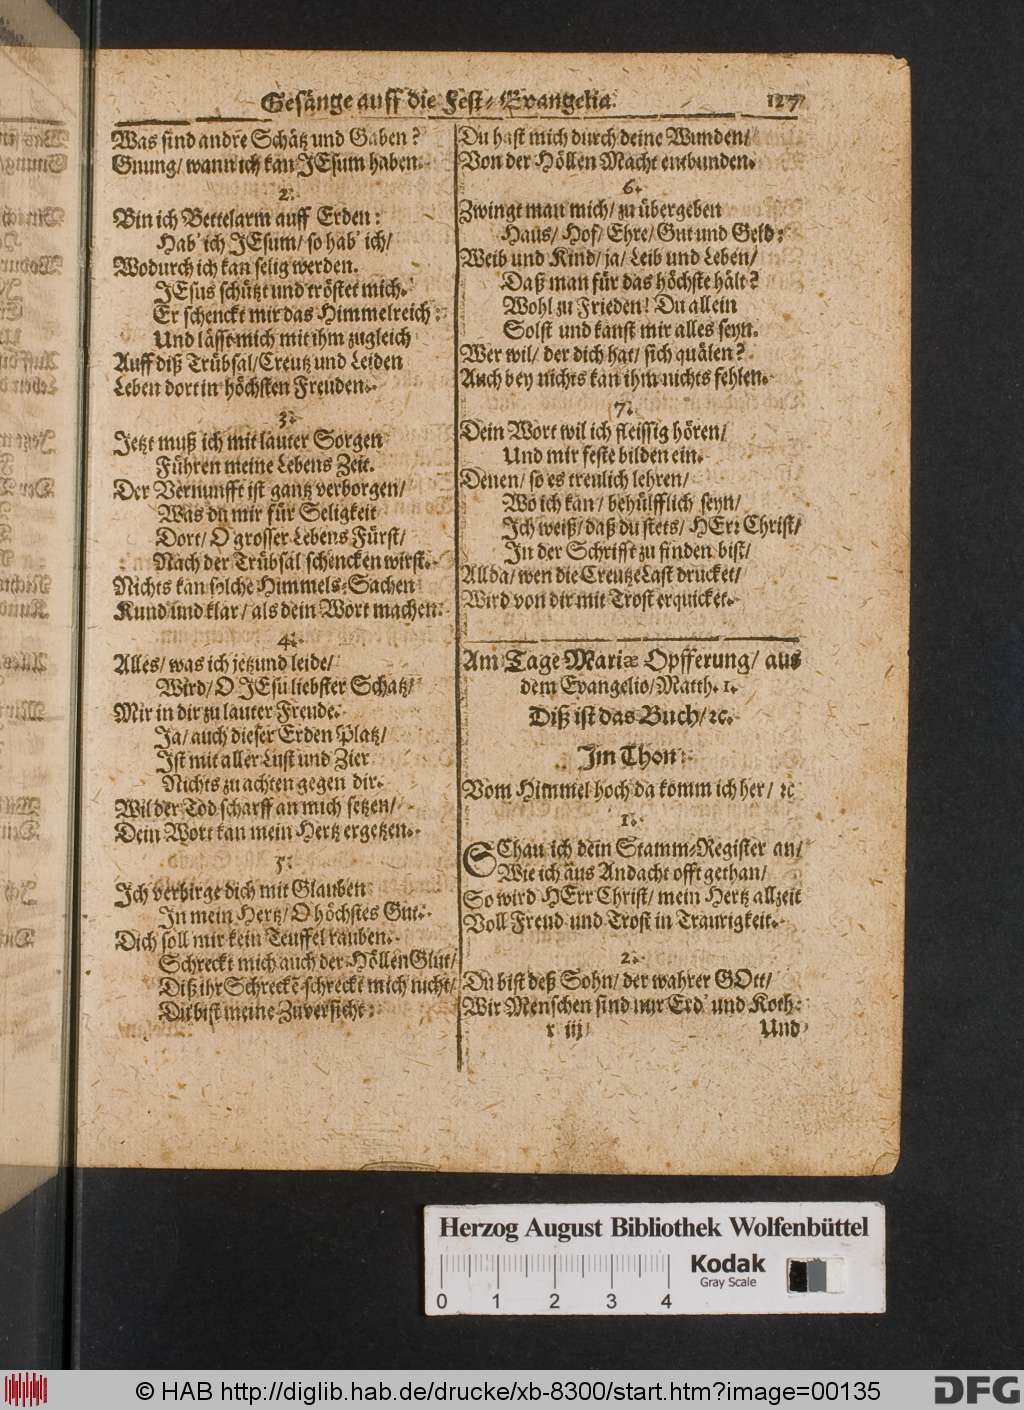 Gesänge auff die Fest-Evangelia. 127
Was sind andre Schätz und Gaben?
Gnung/ wann ich kan JEsum haben.
2.
Bin ich Bettelarm auff Erden:
Hab' ich JEsum/ so hab' ich/
Wodurch ich kan selig werden.
JEsus schützt und tröstet mich.
Er schenckt mir das Himmelreich:
Und lässt mich mit ihm zugleich
Auff diß Trübsal/ Creutz und Leiden
Leben dort in höchsten Freuden.
3.
Jetzt muß ich mit lauter Sorgen
Führen meine Lebens Zeit.
Der Vernunfft ist gantz verborgen/
Was du mir für Seligkeit
Dort/ O grosser Lebens Fürst/
Nach der Trübsal schencken wirst.
Nichts kan solche Himmels-Sachen
Kund und klar/ als dein Wort machen.
4.
Alles/ was ich jetzund leide/
Wird/ O JEsu liebster Schatz/
Mir in dir zu lauter Freude.
Ja/ auch dieser Erden Platz/
Ist mit aller Lust und Zier
Nichts zu achten gegen dir.
Wil der Tod scharff an mich setzen/
Dein Wort kan mein Hertz ergetzen.
5.
Ich verbirge dich mit Glauben
In mein Hertz/ O höchstes Gut.
Dich soll mir kein Teuffel rauben.
Schreckt mich auch der Höllen Glut/
Diß ihr Schreckē schreckt mich nicht/
Du bist meine Zuversicht:
Du hast mich durch deine Wunden/
Von der Höllen Macht entbunden.
6.
Zwingt man mich/ zu übergeben
Haus/ Hof/ Ehre/ Gut und Geld:
Weib und Kind/ ja/ Leib und Leben/
Daß man für das höchste hält?
Wohl zu Frieden! Du allein
Solst und kanst mir alles seyn.
Wer wil/ der dich hat/ sich quälen?
Auch bey nichts kan ihm nichts fehlen.
7.
Dein Wort wil ich fleissig hören/
Und mir feste bilden ein.
Denen/ so es treulich lehren/
Wo ich kan/ behülfflich seyn/
Ich weiß/ daß du stets/ HErr Christ/
In der Schrifft zu finden bist/
Allda/ wen die Creutze Last drucket/
Wird von dir mit Trost erquicket.
Am Tage Mariæ Opfferung/ aus
dem Evangelio/ Matth. 1.
Diß ist das Buch/ ꝛc.
Im Thon:
Vom Himmel hoch da komm ich her/ ꝛc
1.
SChau ich dein Stamm-Register an/
Wie ich aus Andacht offt gethan/
So wird HErr Christ/ mein Hertz allzeit
Voll Freud und Trost in Traurigkeit.
2.
Du bist deß Sohn/ der wahrer GOtt/
Wir Menschen sind nur Erd' und Koth:
r iij
Und
Herzog August Bibliothek Wolfenbüttel
Kodak
Gray Scale
0 1 2 3 4
© HAB http://diglib.hab.de/drucke/xb-8300/start.htm?image=00135
DFG